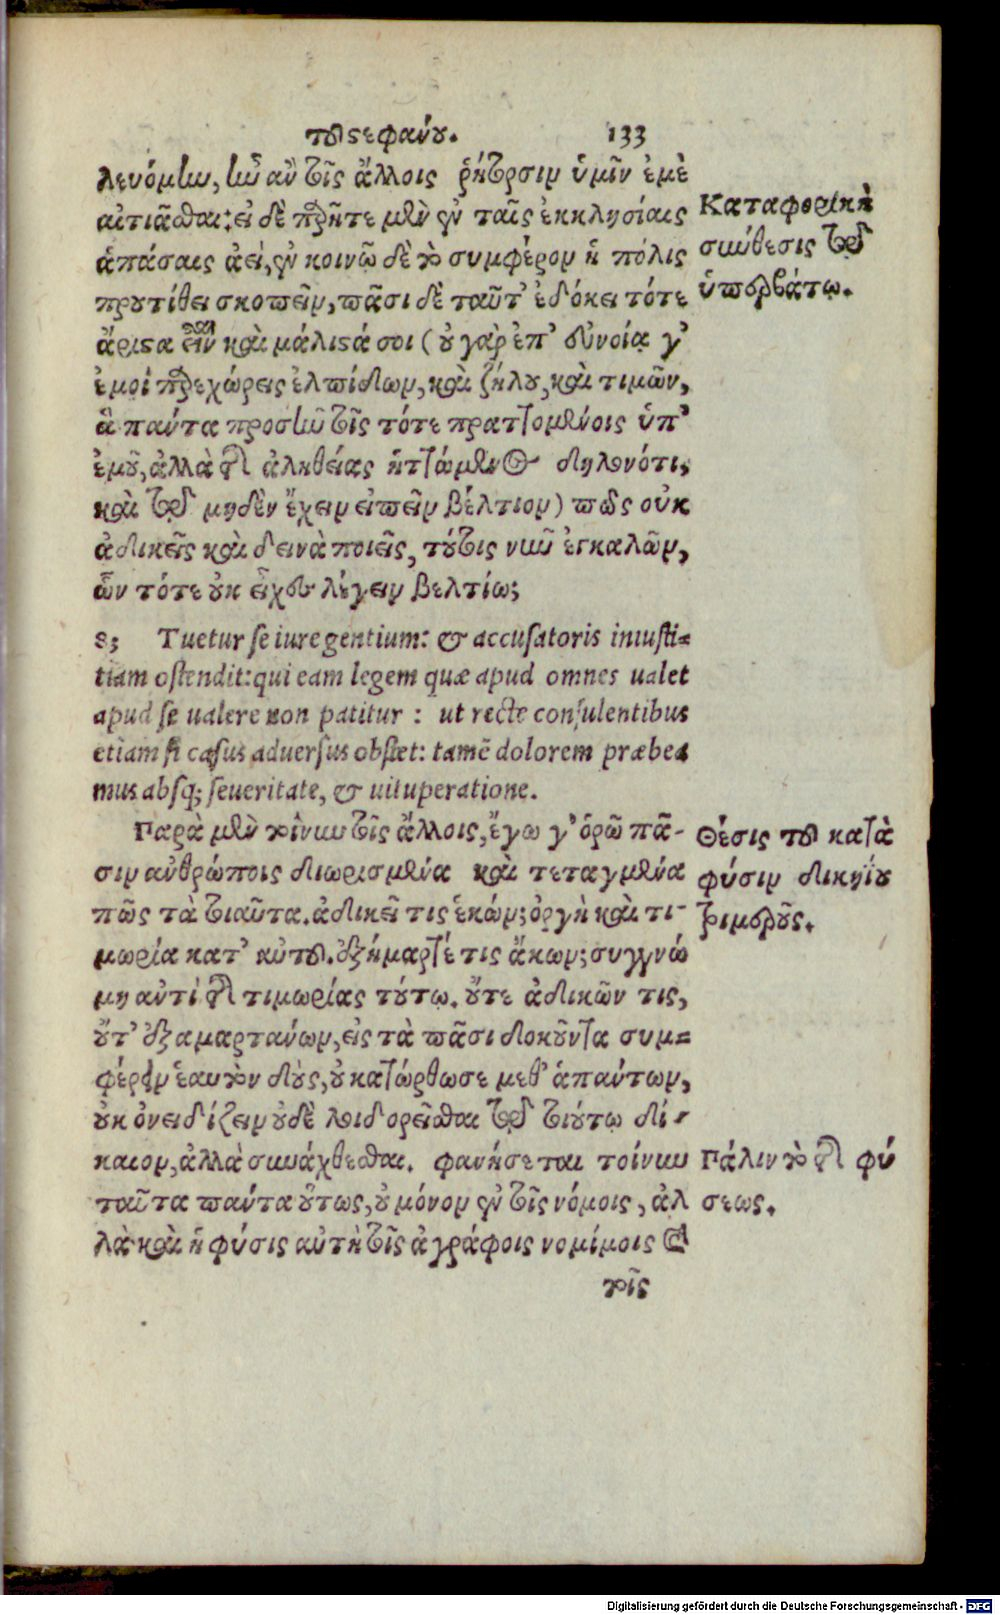 τοῦ στεφάνου. 133
λευόμην, ἦν ἂν τοῖς ἄλλοις ῥήτορσιν ὑμῖν ἐμὲ
αἰτιᾶσθαι: εἰ δὲ παρῆτε μὲν ἐν ταῖς ἐκκλησίαις
ἁπάσαις ἀεὶ, ἐν κοινῶ δὲ τὸ συμφέρον ἡ πόλις
προυτίθει σκοπεῖν, πᾶσι δὲ ταῦτ' ἐδόκει τότε
ἄριστα εἶναι καὶ μάλιστά σοι (οὐ γὰρ ἐπ' εὐνοίᾳ γ'
ἐμοὶ παρεχώρεις ἐλπίδων, καὶ ζήλου, καὶ τιμῶν,
ἃ πάντα προσῆν τοῖς τότε πραττομένοις ὑπ'
ἐμοῦ, ἀλλὰ τῆς ἀληθείας ἡττώμενος δηλονότι,
καὶ τῷ μηδὲν ἔχειν εἰπεῖν βέλτιον) πῶς οὐκ
ἀδικεῖς καὶ δεινὰ ποιεῖς, τούτοις νῦν ἐγκαλῶν,
ὧν τότε οὐκ εἶχες λέγειν βελτίω;
Καταφορικὴ
σύνθεσις τῷ
ὑπερβάτῳ.
83 Tuetur se iure gentium: & accusatoris iniusti-
tiam ostendit: qui eam legem quæ apud omnes ualet
apud se ualere non patitur : ut recte consulentibus
etiam si casus aduersus obstet: tamē dolorem præbea
mus absq; seueritate, & uituperatione.
Παρὰ μὲν τοίνυν τοῖς ἄλλοις, ἔγω γ' ὁρῶ πᾶ-
σιν ἀνθρώποις διωρισμένα καὶ τεταγμένα
πῶς τὰ τοιαῦτα. ἀδικεῖ τις ἑκών; ὀργὴ καὶ τι-
μωρία κατ' αὐτοῦ. ἐξήμαρτέ τις ἄκων; συγγνώ
μη ἀντὶ τῆς τιμωρίας τούτῳ. οὔτε ἀδικῶν τις,
οὔτ' ἐξαμαρτάνων, εἰς τὰ πᾶσι δοκοῦντα συμ-
φέρειν ἑαυτὸν δοὺς, οὐ κατώρθωσε μεθ' ἁπάντων,
οὐκ ὀνειδίζειν οὐδὲ λοιδορεῖσθαι τῷ τοιούτῳ δί-
καιον, ἀλλὰ συνάχθεσθαι. φανήσεται τοίνυν
ταῦτα πάντα οὕτως, οὐ μόνον ἐν τοῖς νόμοις, ἀλ
λὰ καὶ ἡ φύσις αὐτὴ τοῖς ἀγράφοις νομίμοις καὶ
τοῖς
Θέσις τοῦ κατὰ
φύσιν δικαίου
τριμεροῦς.
Πάλιν τὸ τῆς φύ
σεως.
Digitalisierung gefördert durch die Deutsche Forschungsgemeinschaft - DFG